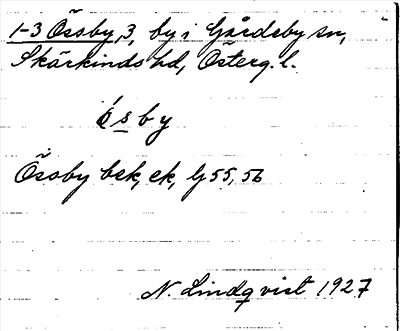 1-3 Össby, 3, by i Gårdeby sn,
Skärkinds hd, Österg. l.
ósby
Össby bek, ek, lj 55, 56
N. Lindqvist 1927